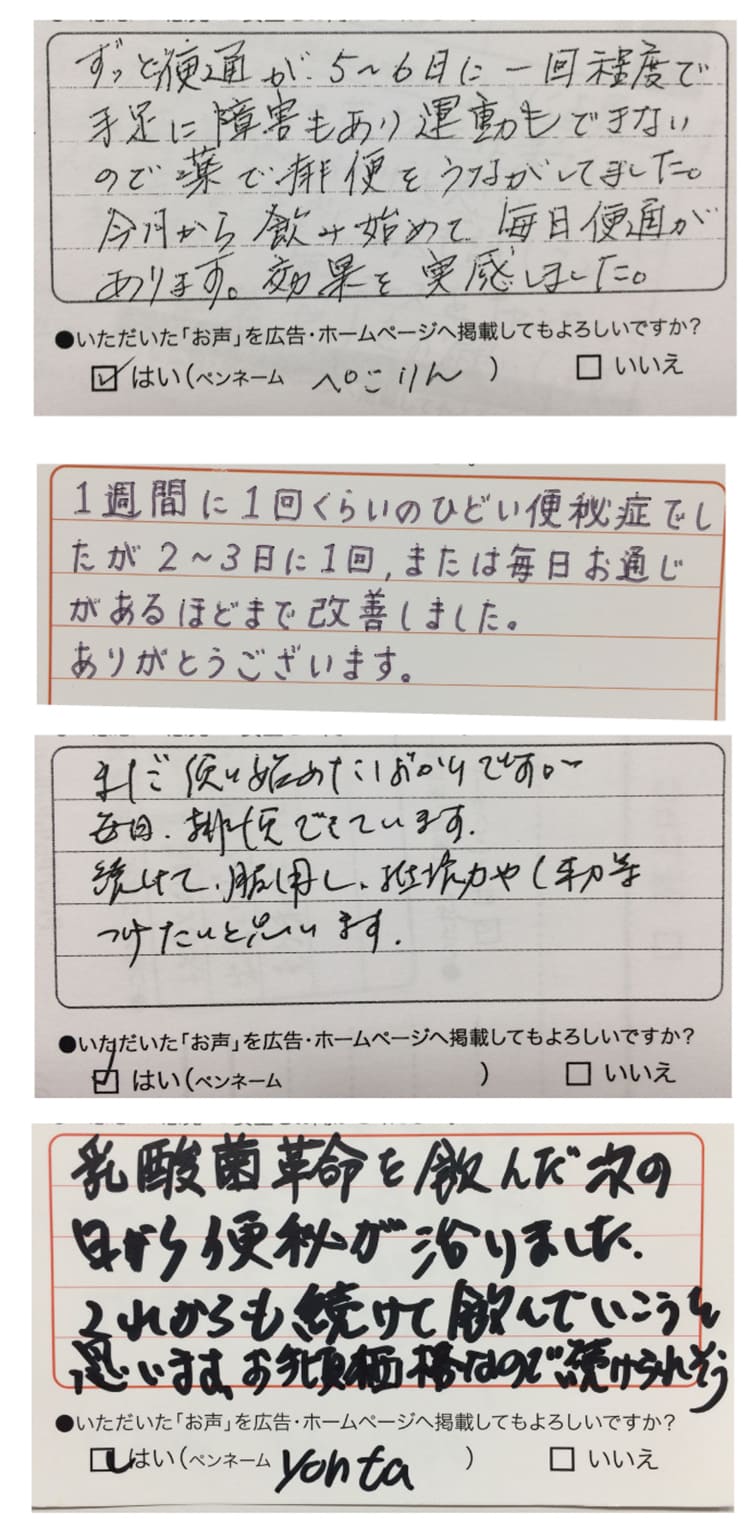 ずっと便通が、5~6日に一回程度で
手足に障害もあり運動もできない
ので薬で排便をうながしてました。
今月から飲み始めて毎日便通が
あります。効果を実感しました。
●いただいた「お声」を広告・ホームページへ掲載してもよろしいですか?
はい(ペンネーム ぺこりん ) □いいえ
1週間に1回くらいのひどい便秘症でし
たが2~3日に1回,または毎日お通じ
があるほどまで改善しました。
ありがとうございます。
まだ使い始めたばかりですが
毎日、排便できています。
続けて、服用し、抵抗力や
つけたいと思います.
●いただいた「お声」を広告・ホームページへ掲載してもよろしいですか?
はい(ペンネーム ) □いいえ
乳酸菌革命を飲んだ次の
日から便秘が治りました.
これからも続けて飲んでいこうと
思います、お手頃価格なので続けられそう
●いただいた「お声」を広告・ホームページへ掲載してもよろしいですか?
はい(ペンネーム yonta ) □いいえ